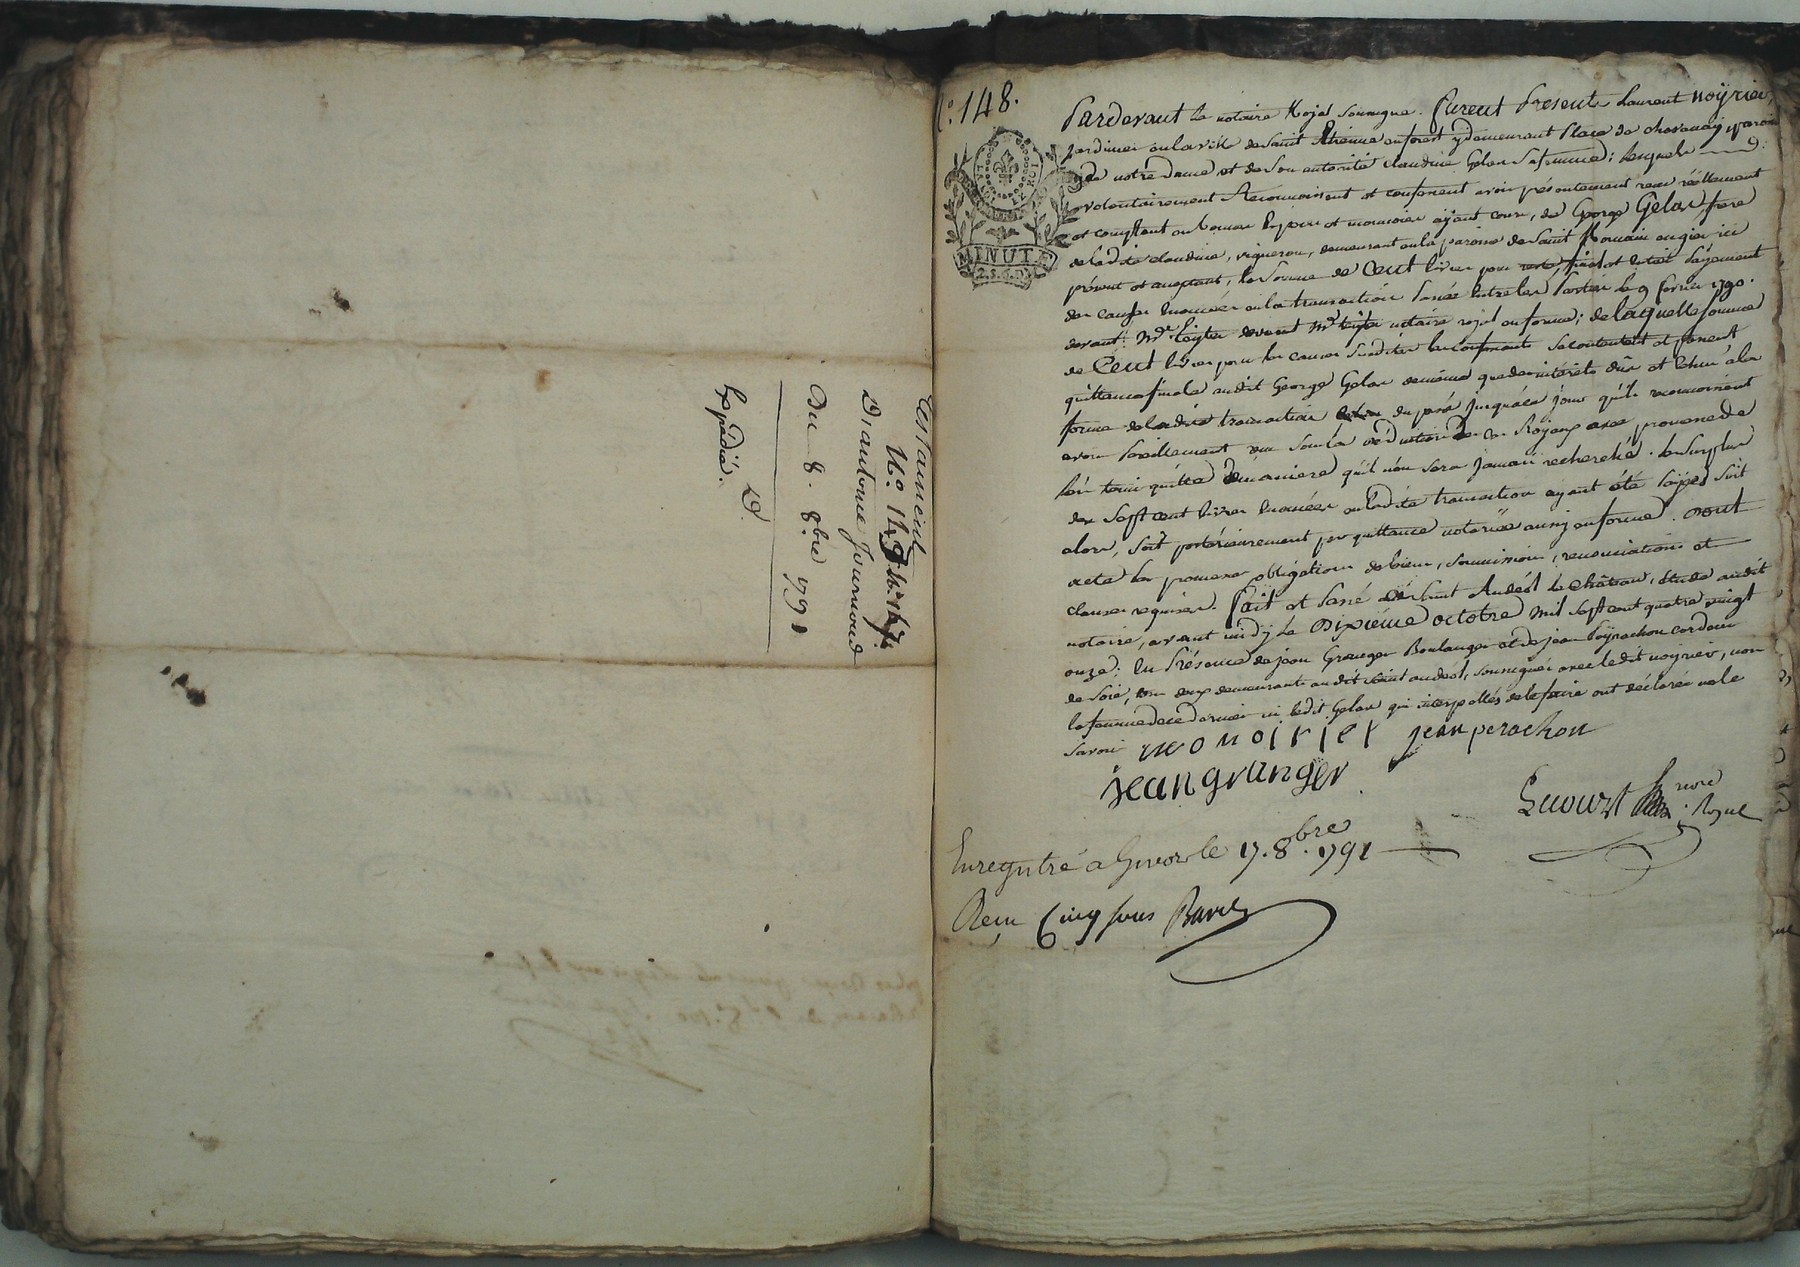 Testament
N.o 149
D'antoine Journoud
Du 8. 8bre 1791
Expédié.
N.o 148.
MINUTE
2.S.6.D
Pardevant le notaire Royal Soussigné. furent Presents Laurent noÿrier,
jardinier en la ville de Saint Etienne en forest y demeurant Place de chavanay, parois
de notre dame, et de son autorité Claudine Gelas sa femme; lesquels
volontairement Reconnoissent et confessent avoir présentement reçu réellement
et comptant en bonnes Espèces et monnoies ayant cours, de George Gelas frere
de ladite claudine, vigneron, demeurant en la paroisse de Saint Romain en gier ici
présent et acceptant, la Somme de Cent livres pour final et entier payement
des causes Enoncées en la transaction Passée Entre les Parties le 9 fevrier 1790.
devant notaire royal en forme; de laquelle somme
de Cent livres pour les causes susdites les confessants se contentent et passent
quittance finale audit George Gelas de même que des interets dûs et échus à la
forme de ladite transaction du passé jusqu'à ce jour qu'ils reconnoissent
avoir pareillement reçu sous la déduction des Royaux avec promesse de
l'en tenir quitte de maniere qu'il n'en sera jamais recherché. le Surplus
des Sept cent livres Enoncées en ladite transaction ayant été payé soit
alors, soit postérieurement par quittance notariée aussy en forme. Dont
acte les promesses obligations de biens, soumissions, renonciations et
clauses requises. fait et Passé à Saint Andéol le Château, étude dudit
notaire, avant midy le Dixième octobre mil sept cent quatre vingt
onze; En Présence de jean Granger Boulanger et de jean Peÿrachon cordon
de Soie, tous deux demeurants audit Saint andéol, soussignés avec ledit noyrier, non
la femme de ce dernier ni ledit Gelas qui interpellés de le faire ont déclaré ne le
savoir
noirier jean perachon
jean granger
Enregistré a Givors le 17. 8bre. 1791
Reçu Cinq sous